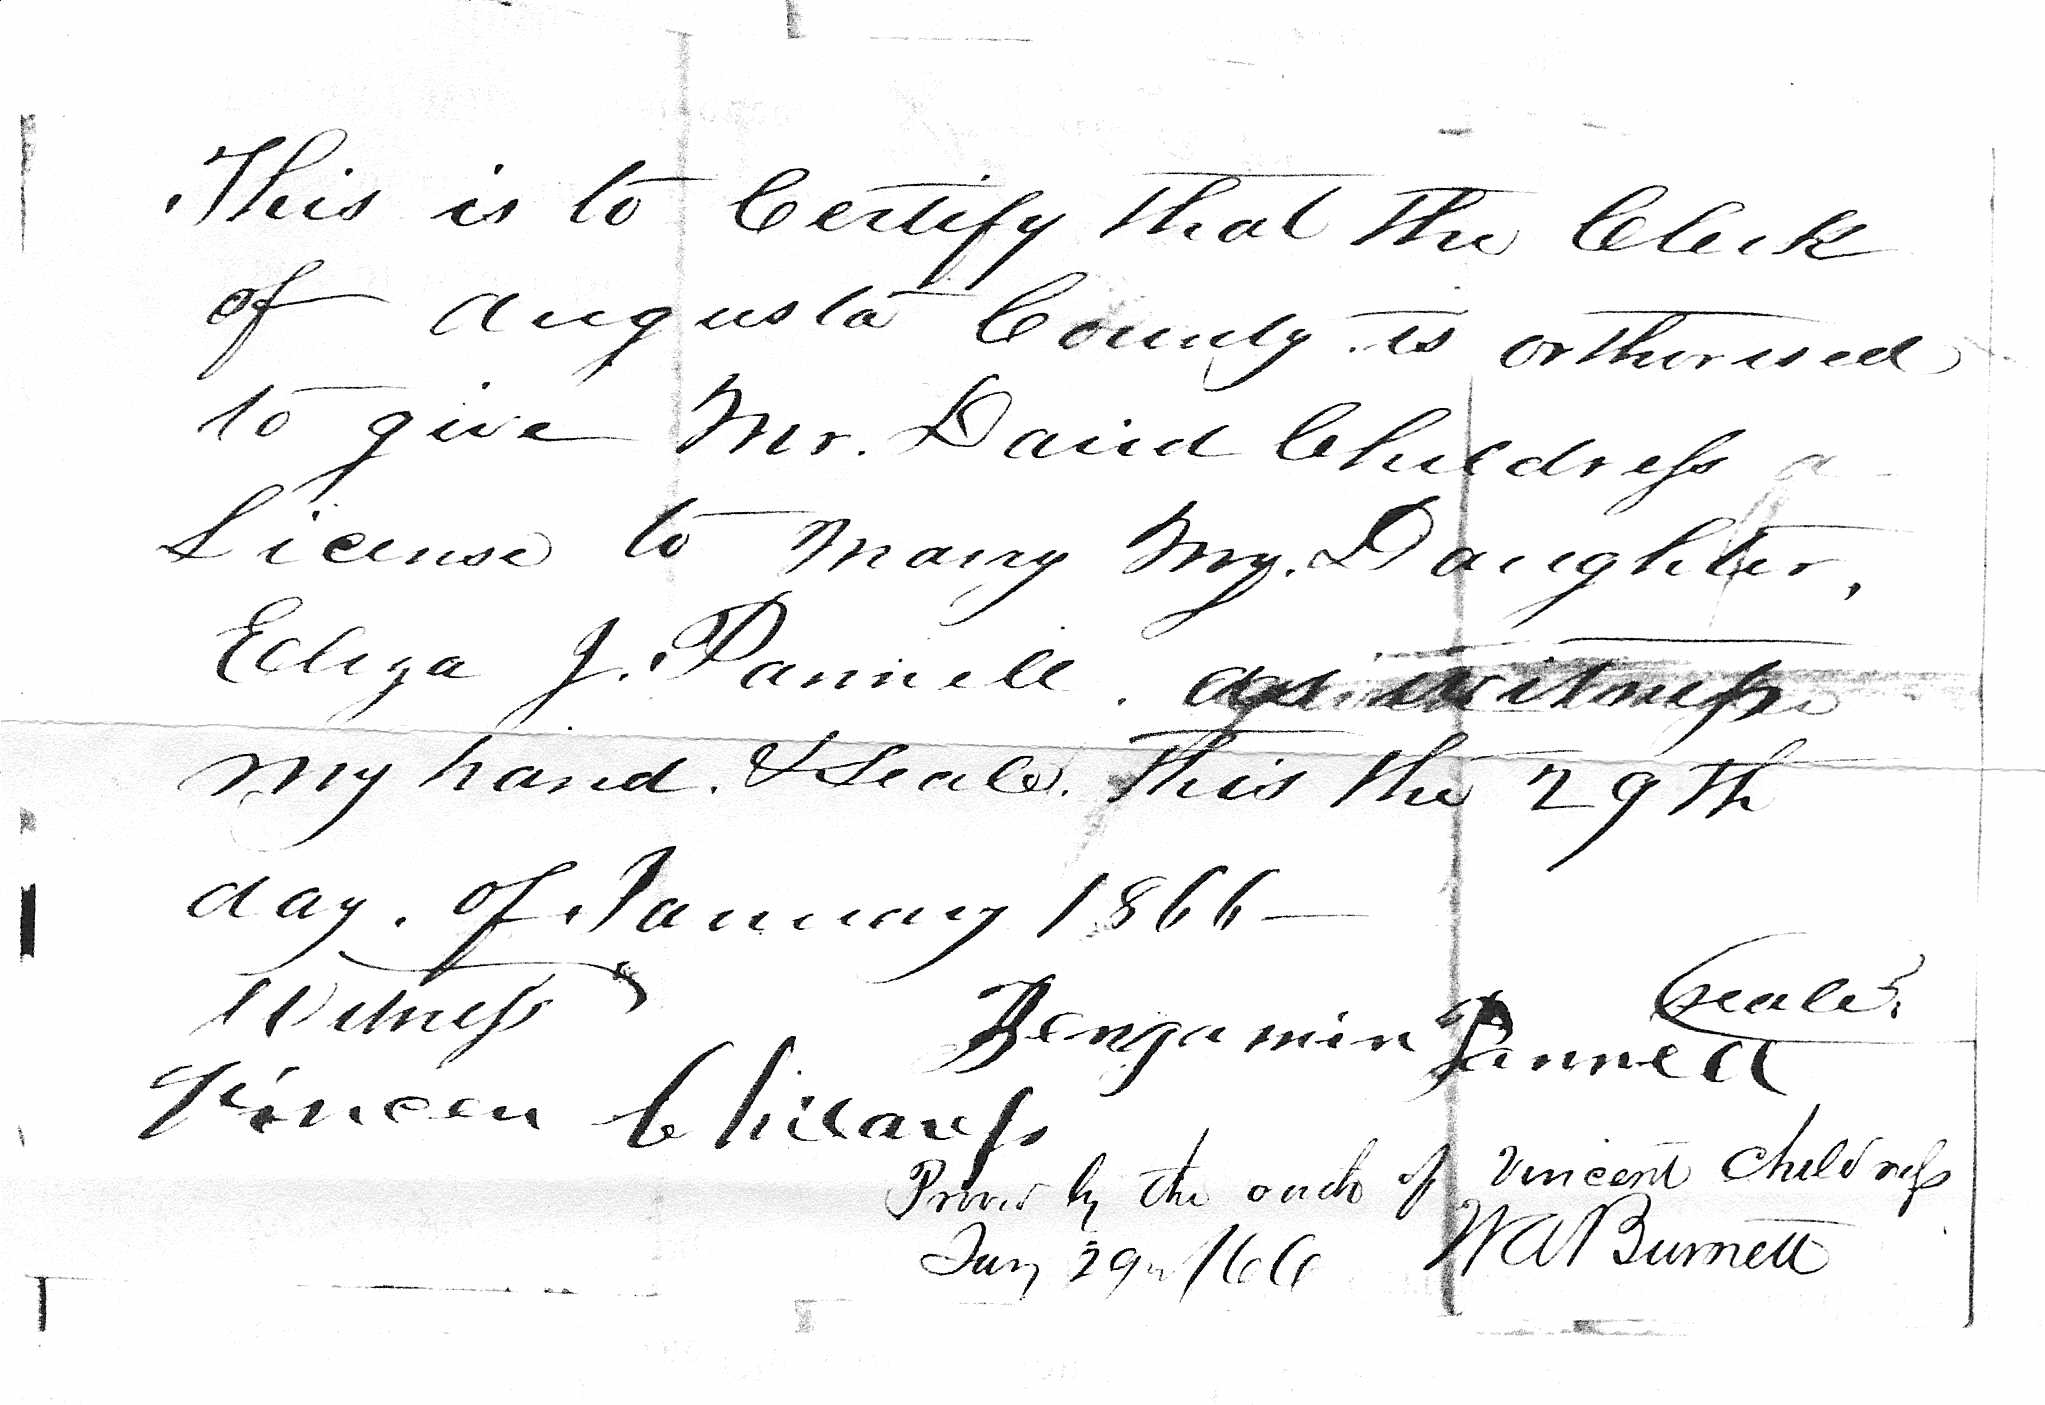 This is to Certify that the Clerk
of Augusta County is orthorised
to give Mr. David Childress a
License to Marry My. Daughter,
Eliza J. Pannell. as witness
my hand. & Seale. this the 29th
day. of January 1866—
Witness
Benjamin Pannell Seale
Vincen Childress
Proved by the oath of Vincent Childress
Jany 29th /66 W A Burnett